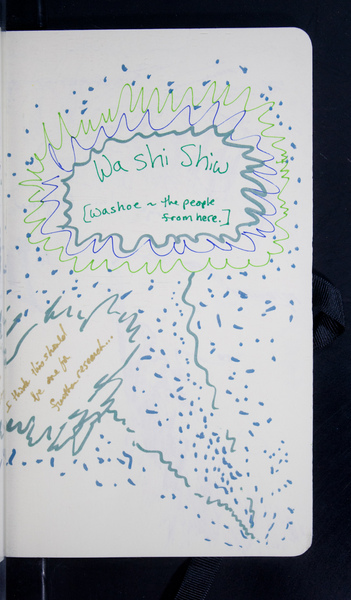 Wa shi Shiw
[Washoe ~ the people
from here.]
I think this should
be one for
further research...